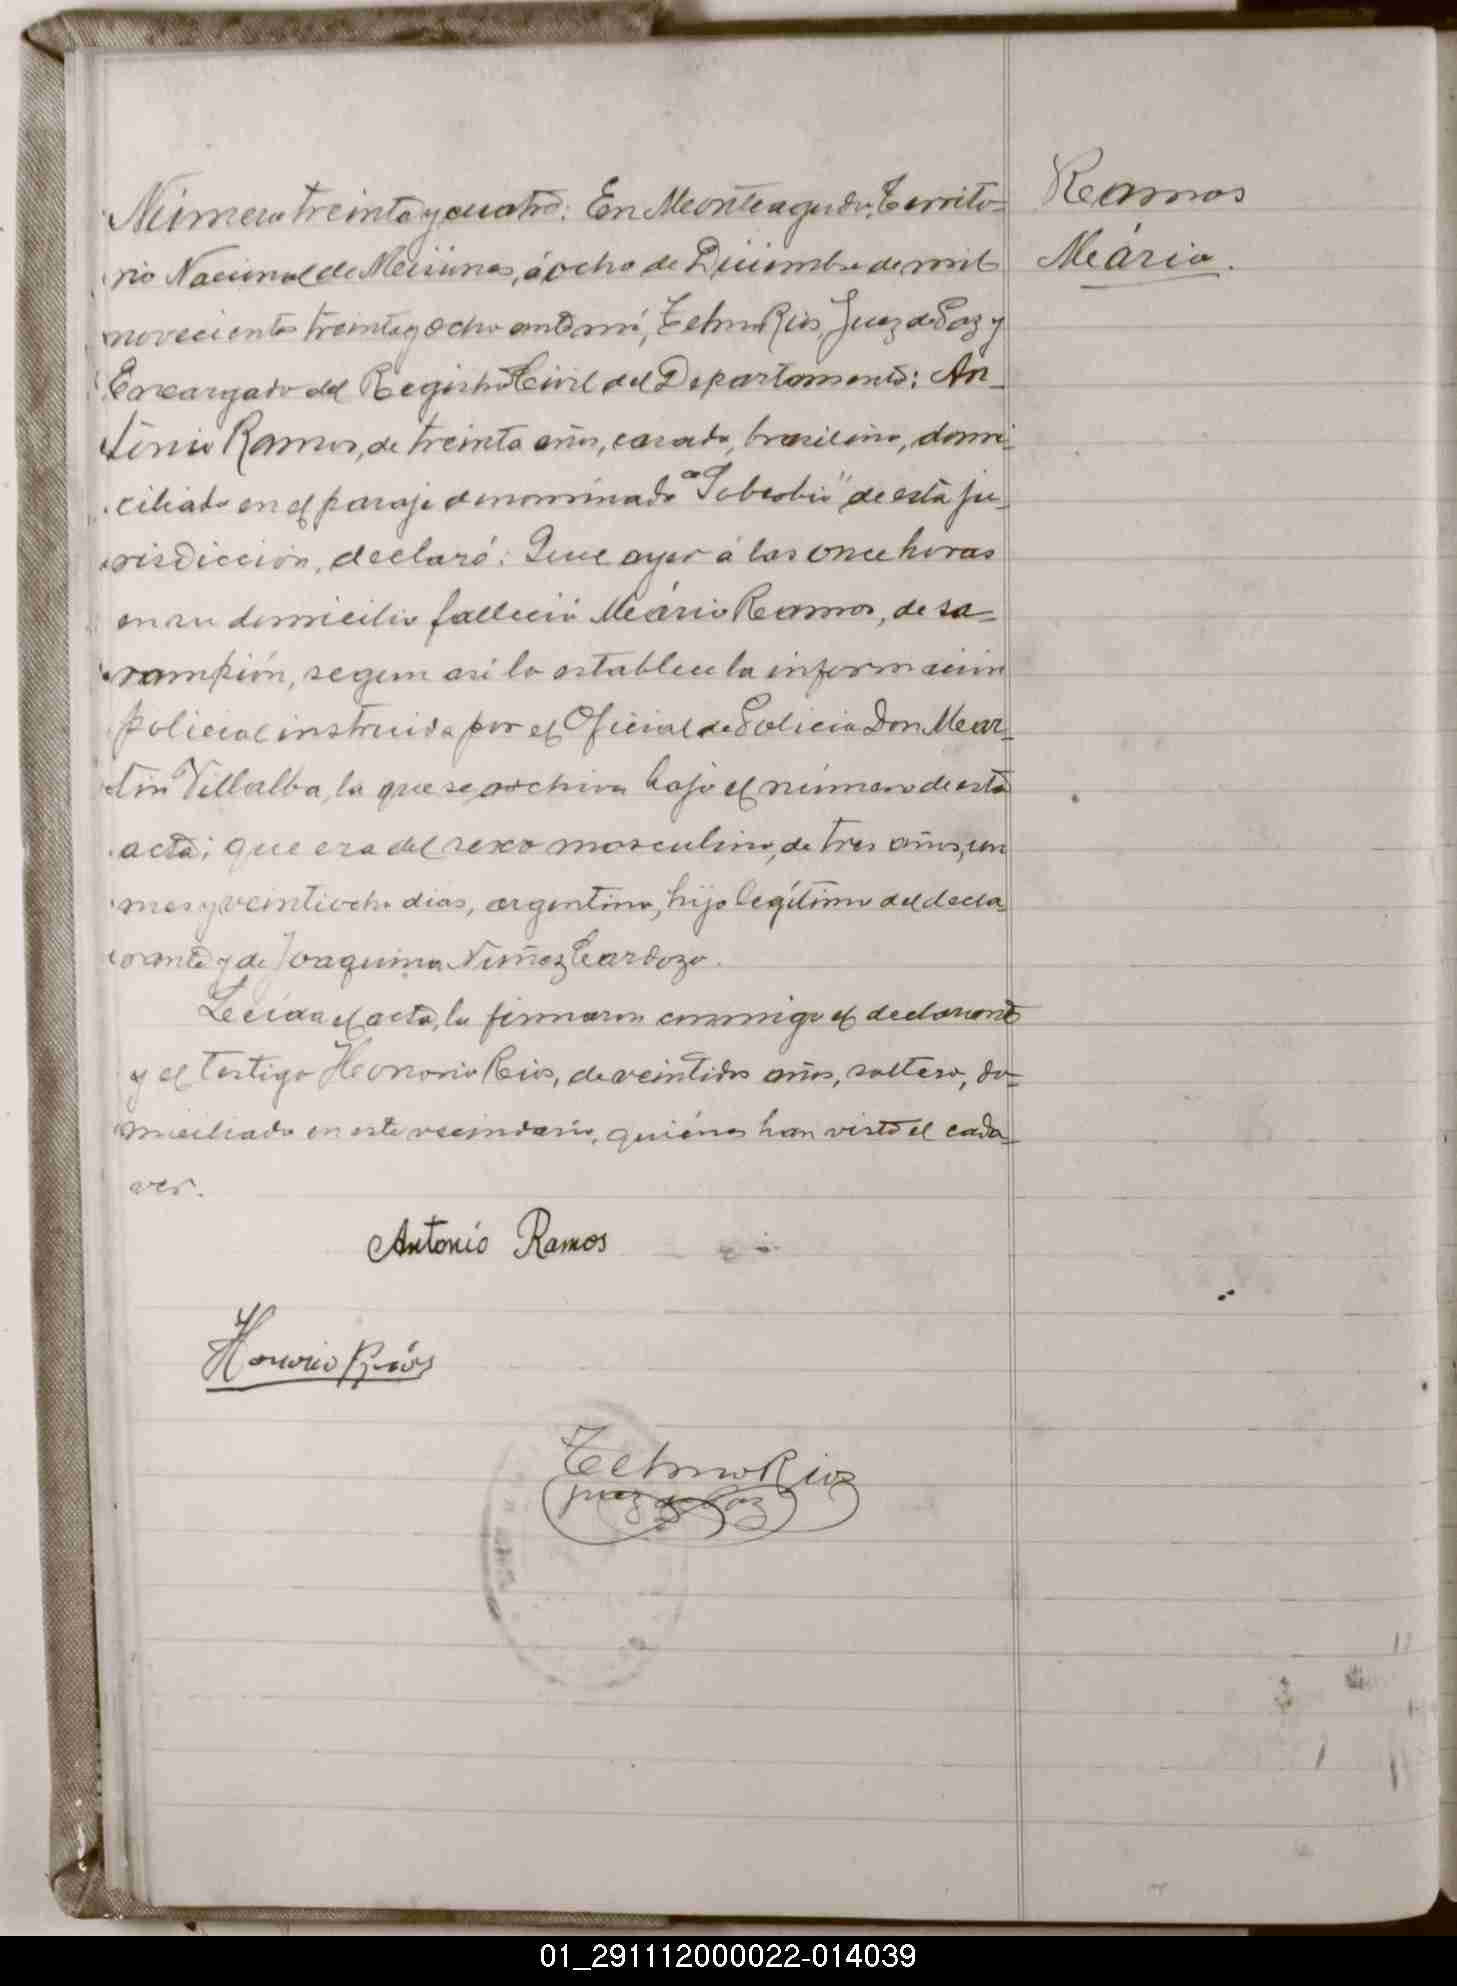 Número treinta y cuatro: En Monteagudo, Territo-
rio Nacional de Misiones, á ocho de Diciembre de mil
novecientos treinta y ocho ante mí, Telmo Rios, Juez de Paz y
Encargado del Registro Civil del Departamento: An-
tonio Ramos, de treinta años, casado, brasileño, domi-
ciliado en el paraje denominado de esta ju-
risdicción, declaró: Que ayer á las once horas
en su domicilio falleció Mário Ramos, de sa-
rampión, segun así lo establece la información
policial instruida por el Oficial de Policia Don Mar-
tin Villalba, la que se archiva bajo el número de esta
acta; que era del sexo masculino, de tres años, un
mes y veintiocho dias, argentino, hijo legítimo del decla-
rante y de Joaquina Nuñez Cardozo.
Leida el acta, la firmaron conmigo el declarante
y el testigo Honorio Rios, de veintidos años, soltero, do-
miciliado en este vecindario, quiénes han visto el cada-
ver.
Antonio Ramos
Honorio Rios
Telmo Rios
Juez de Paz
Ramos
Mário.
01_291112000022-014039